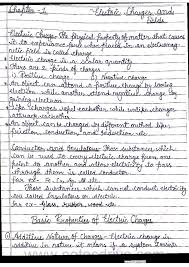 Chapter-1 Electric Charges and
Fields
Electric Charge: The physical property of matter that causes
it to experience force when placed in an electromag-
netic field is called charge.
Electric charge is a scalar quantity
There are 2 kinds of charges
1) Positive charge 2) Negative charge
An object can attend a positive charge by losing
electron while another attend negative charge by
gaining electrons
Like charges repel eachother while unlike charges
attract eachother.
An object can be charged by different method like-
friction, conduction, and induction etc
Conductors and Insulators: Those substances which
can be used to carry electric charge from one
point to another and allow electricity to pass
through them is called conductor
for ex- Fe, Cu, Ag, Al etc
Those substances which cannot conduct electricity
are called Insulators or dielectric
for ex- Glass, Rubber, wood etc.
Basic Properties of Electric Charges
1) Additive Nature of Charges - Electric charge is
additive in nature it means if a system consists